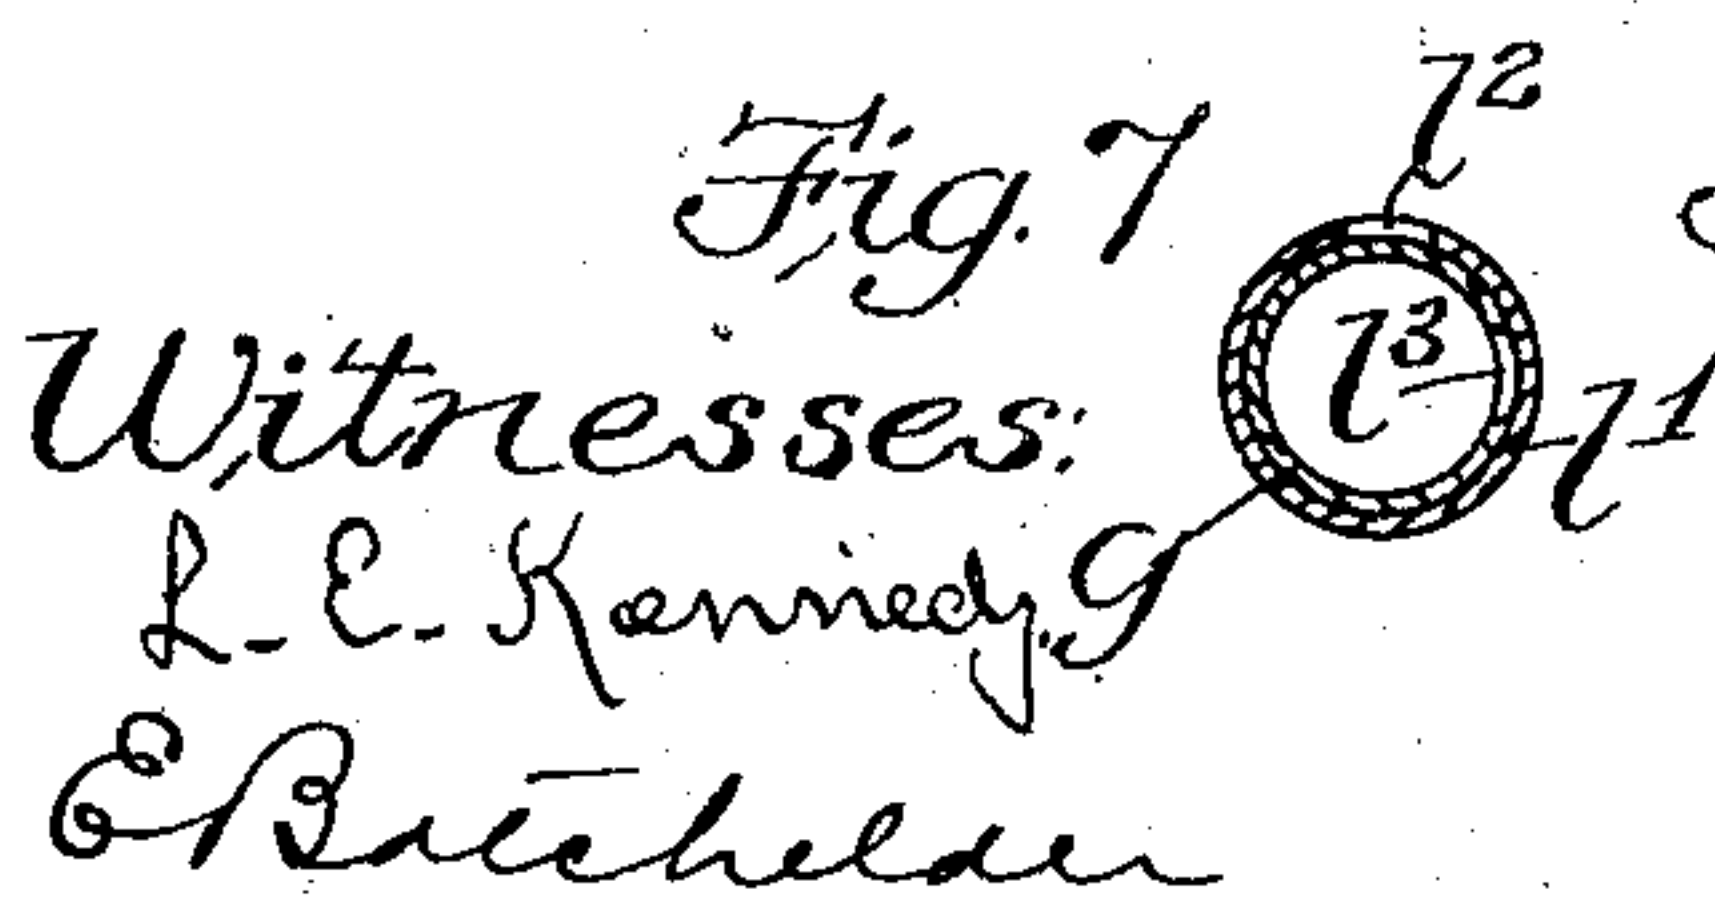 Fig. 7
l²
l³
l¹
g
Witnesses:
L. E. Kennedy.
E Batchelder